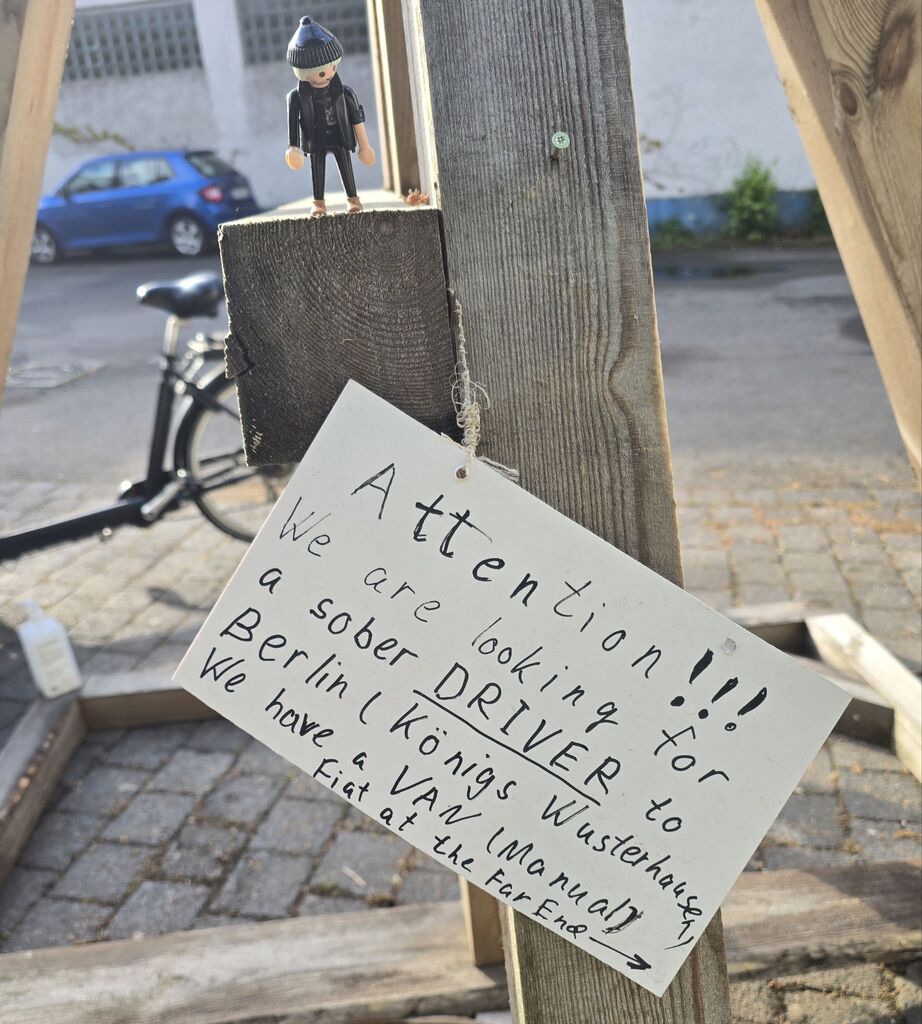 Attention!!!
We are looking for
a sober DRIVER to
Berlin (Königs Wusterhausen)
We have a VAN (Manual)
Fiat at the Far End →